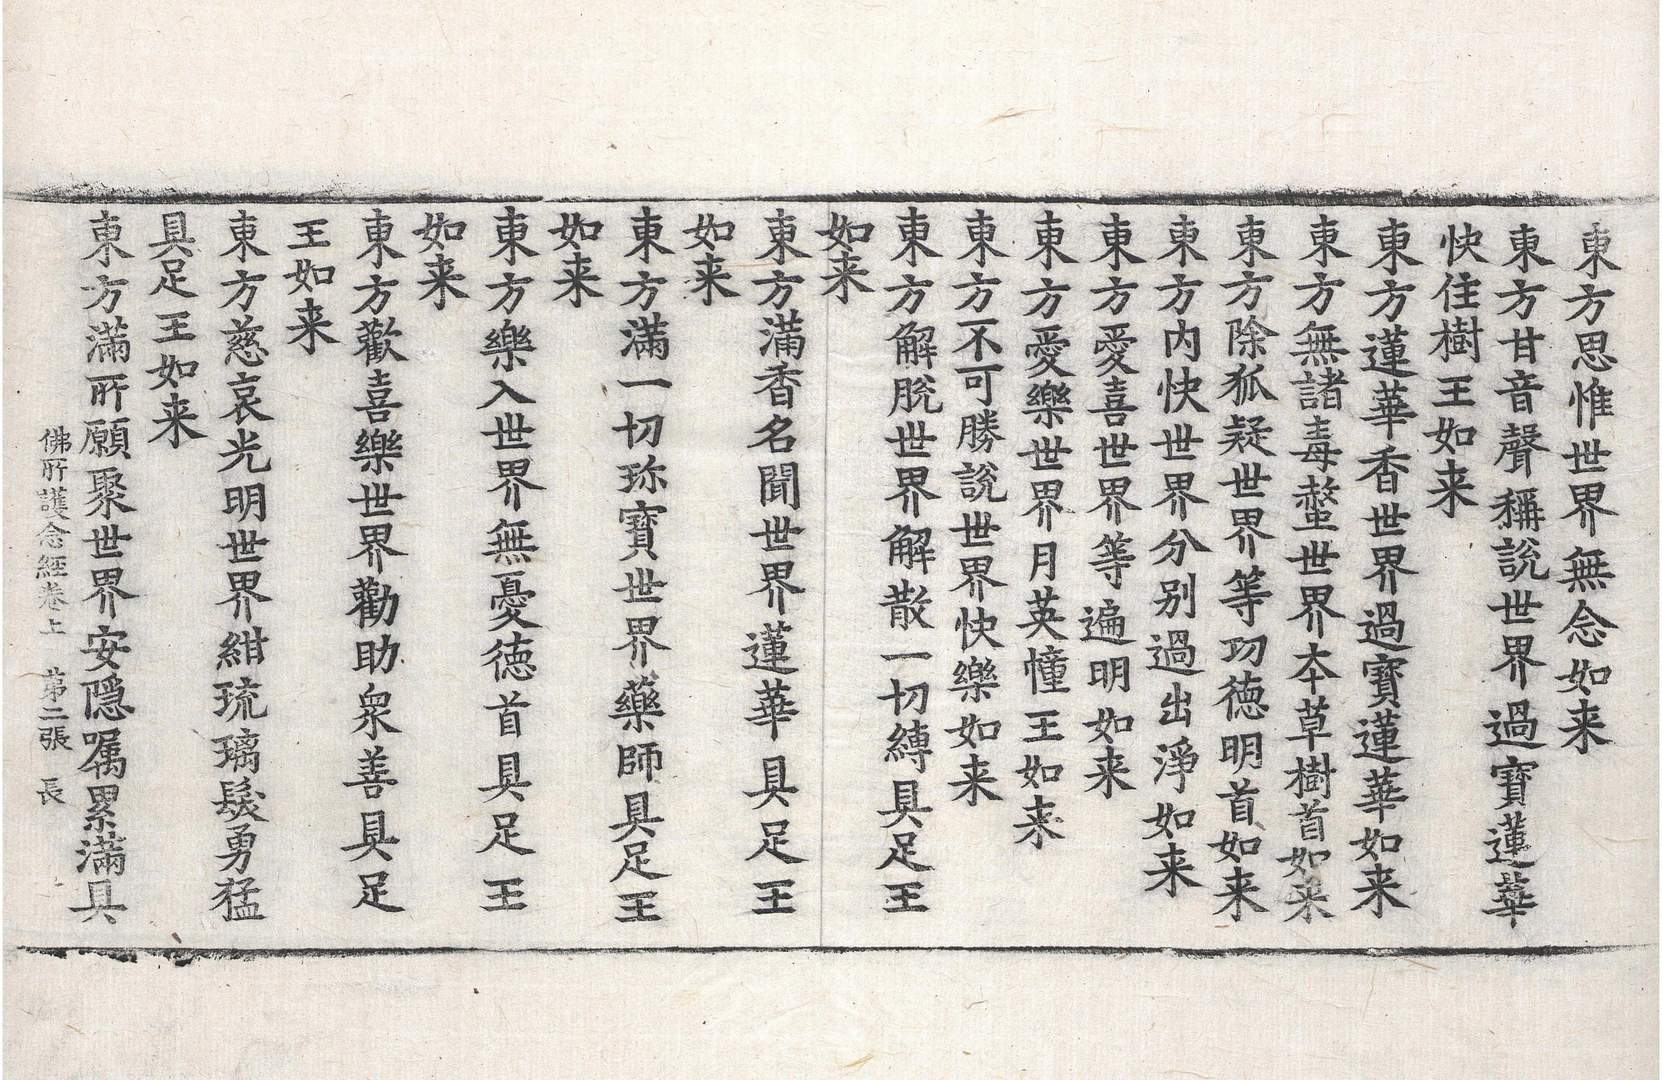 東方思惟世界無念如来
東方甘音聲稱說世界過寶蓮華
快住樹王如来
東方蓮華香世界過寶蓮華如来
東方無諸毒螫世界本草樹首如来
東方除狐疑世界等功徳明首如来
東方内快世界分别過出淨如来
東方愛喜世界等遍明如来
東方愛樂世界月英幢王如来
東方不可勝說世界快樂如来
東方解脫世界解散一切縛具足王
如来
東方滿香名聞世界蓮華具足王
如来
東方滿一切珎寶世界藥師具足王
如来
東方樂入世界無憂徳首具足王
如来
東方歡喜樂世界勸助衆善具足
王如来
東方慈哀光明世界紺琉璃髮勇猛
具足王如来
東方滿所願聚世界安隱嘱累滿具
佛所護念經卷上 第二張 長